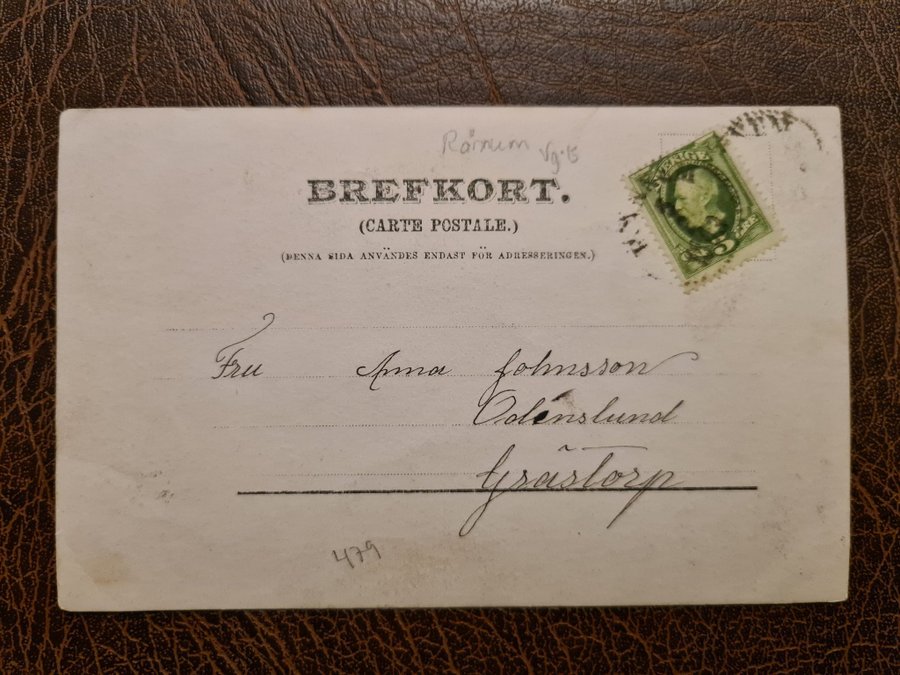 BREFKORT.
(CARTE POSTALE.)
(DENNA SIDA ANVÄNDES ENDAST FÖR ADRESSERINGEN.)
SVERIGE
5 ÖRE
Fru Anna Johnsson
Odenslund
Grästorp
479